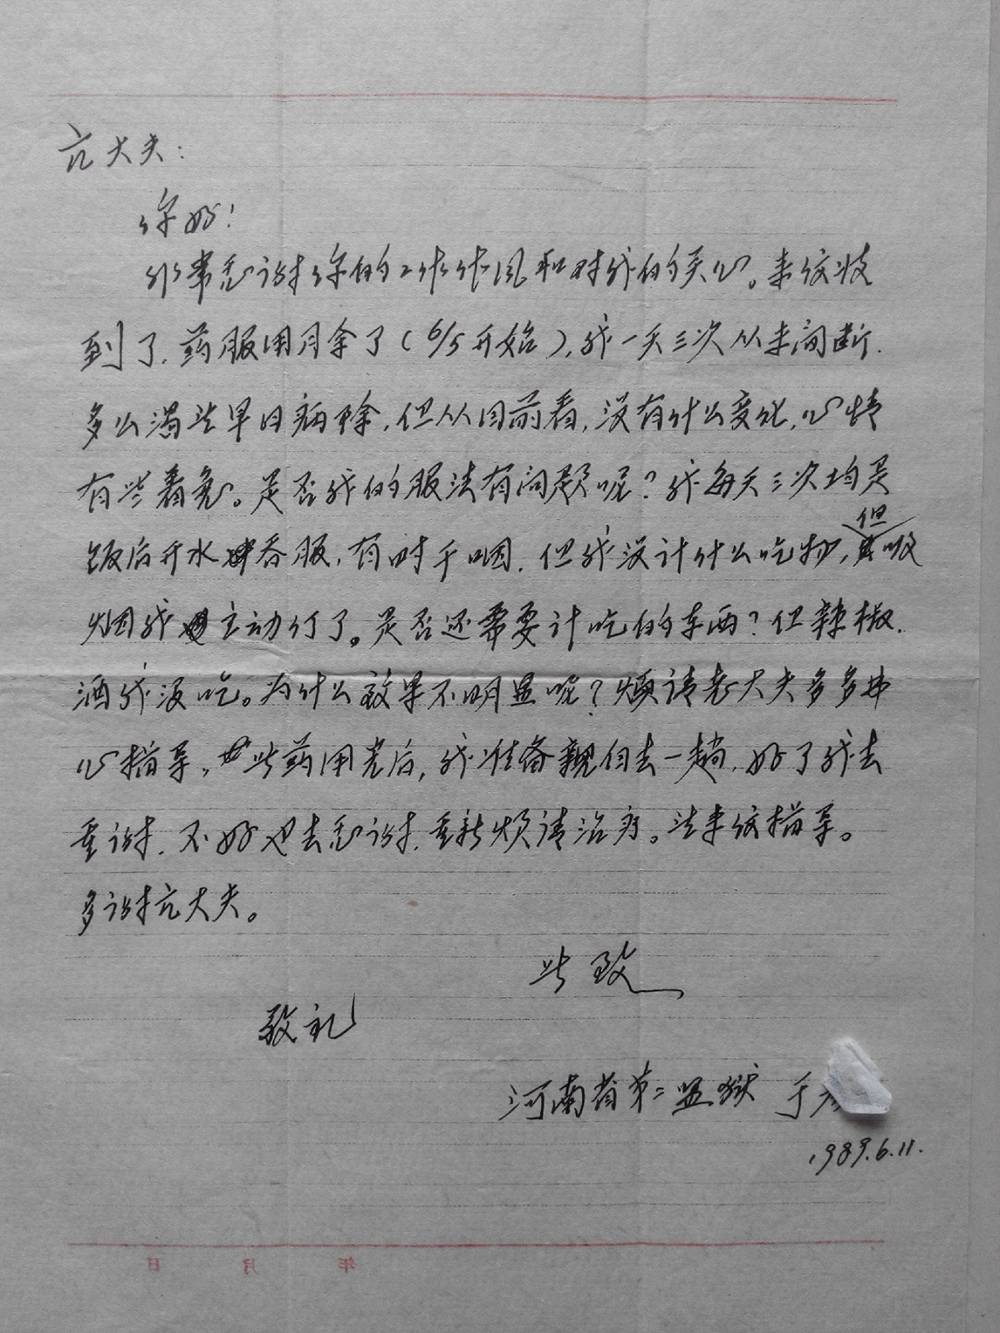 亢大夫：
你好！
非常感谢你的工作作风和对我的关心。来信收
到了，药服用月余了（6/5开始），我一天三次从未间断，
多么渴望早日病除，但从目前看，没有什么变化，心情
有些着急。是否我的服法有问题呢？我每天三次均是
饭后开水吞服，有时干咽，但我没计什么吃物，但吸
烟我主动停了。是否还需要计吃的东西？但辣椒、
酒我没吃。为什么效果不明显呢？烦请老大夫多多
心指导，些药用完后，我准备亲自去一趟，好了我去
重谢，不好也去感谢，重新烦请治疗。望来信指导。
多谢亢大夫。
此致
敬礼
河南省第二监狱 于
1989.6.11.
年 月 日